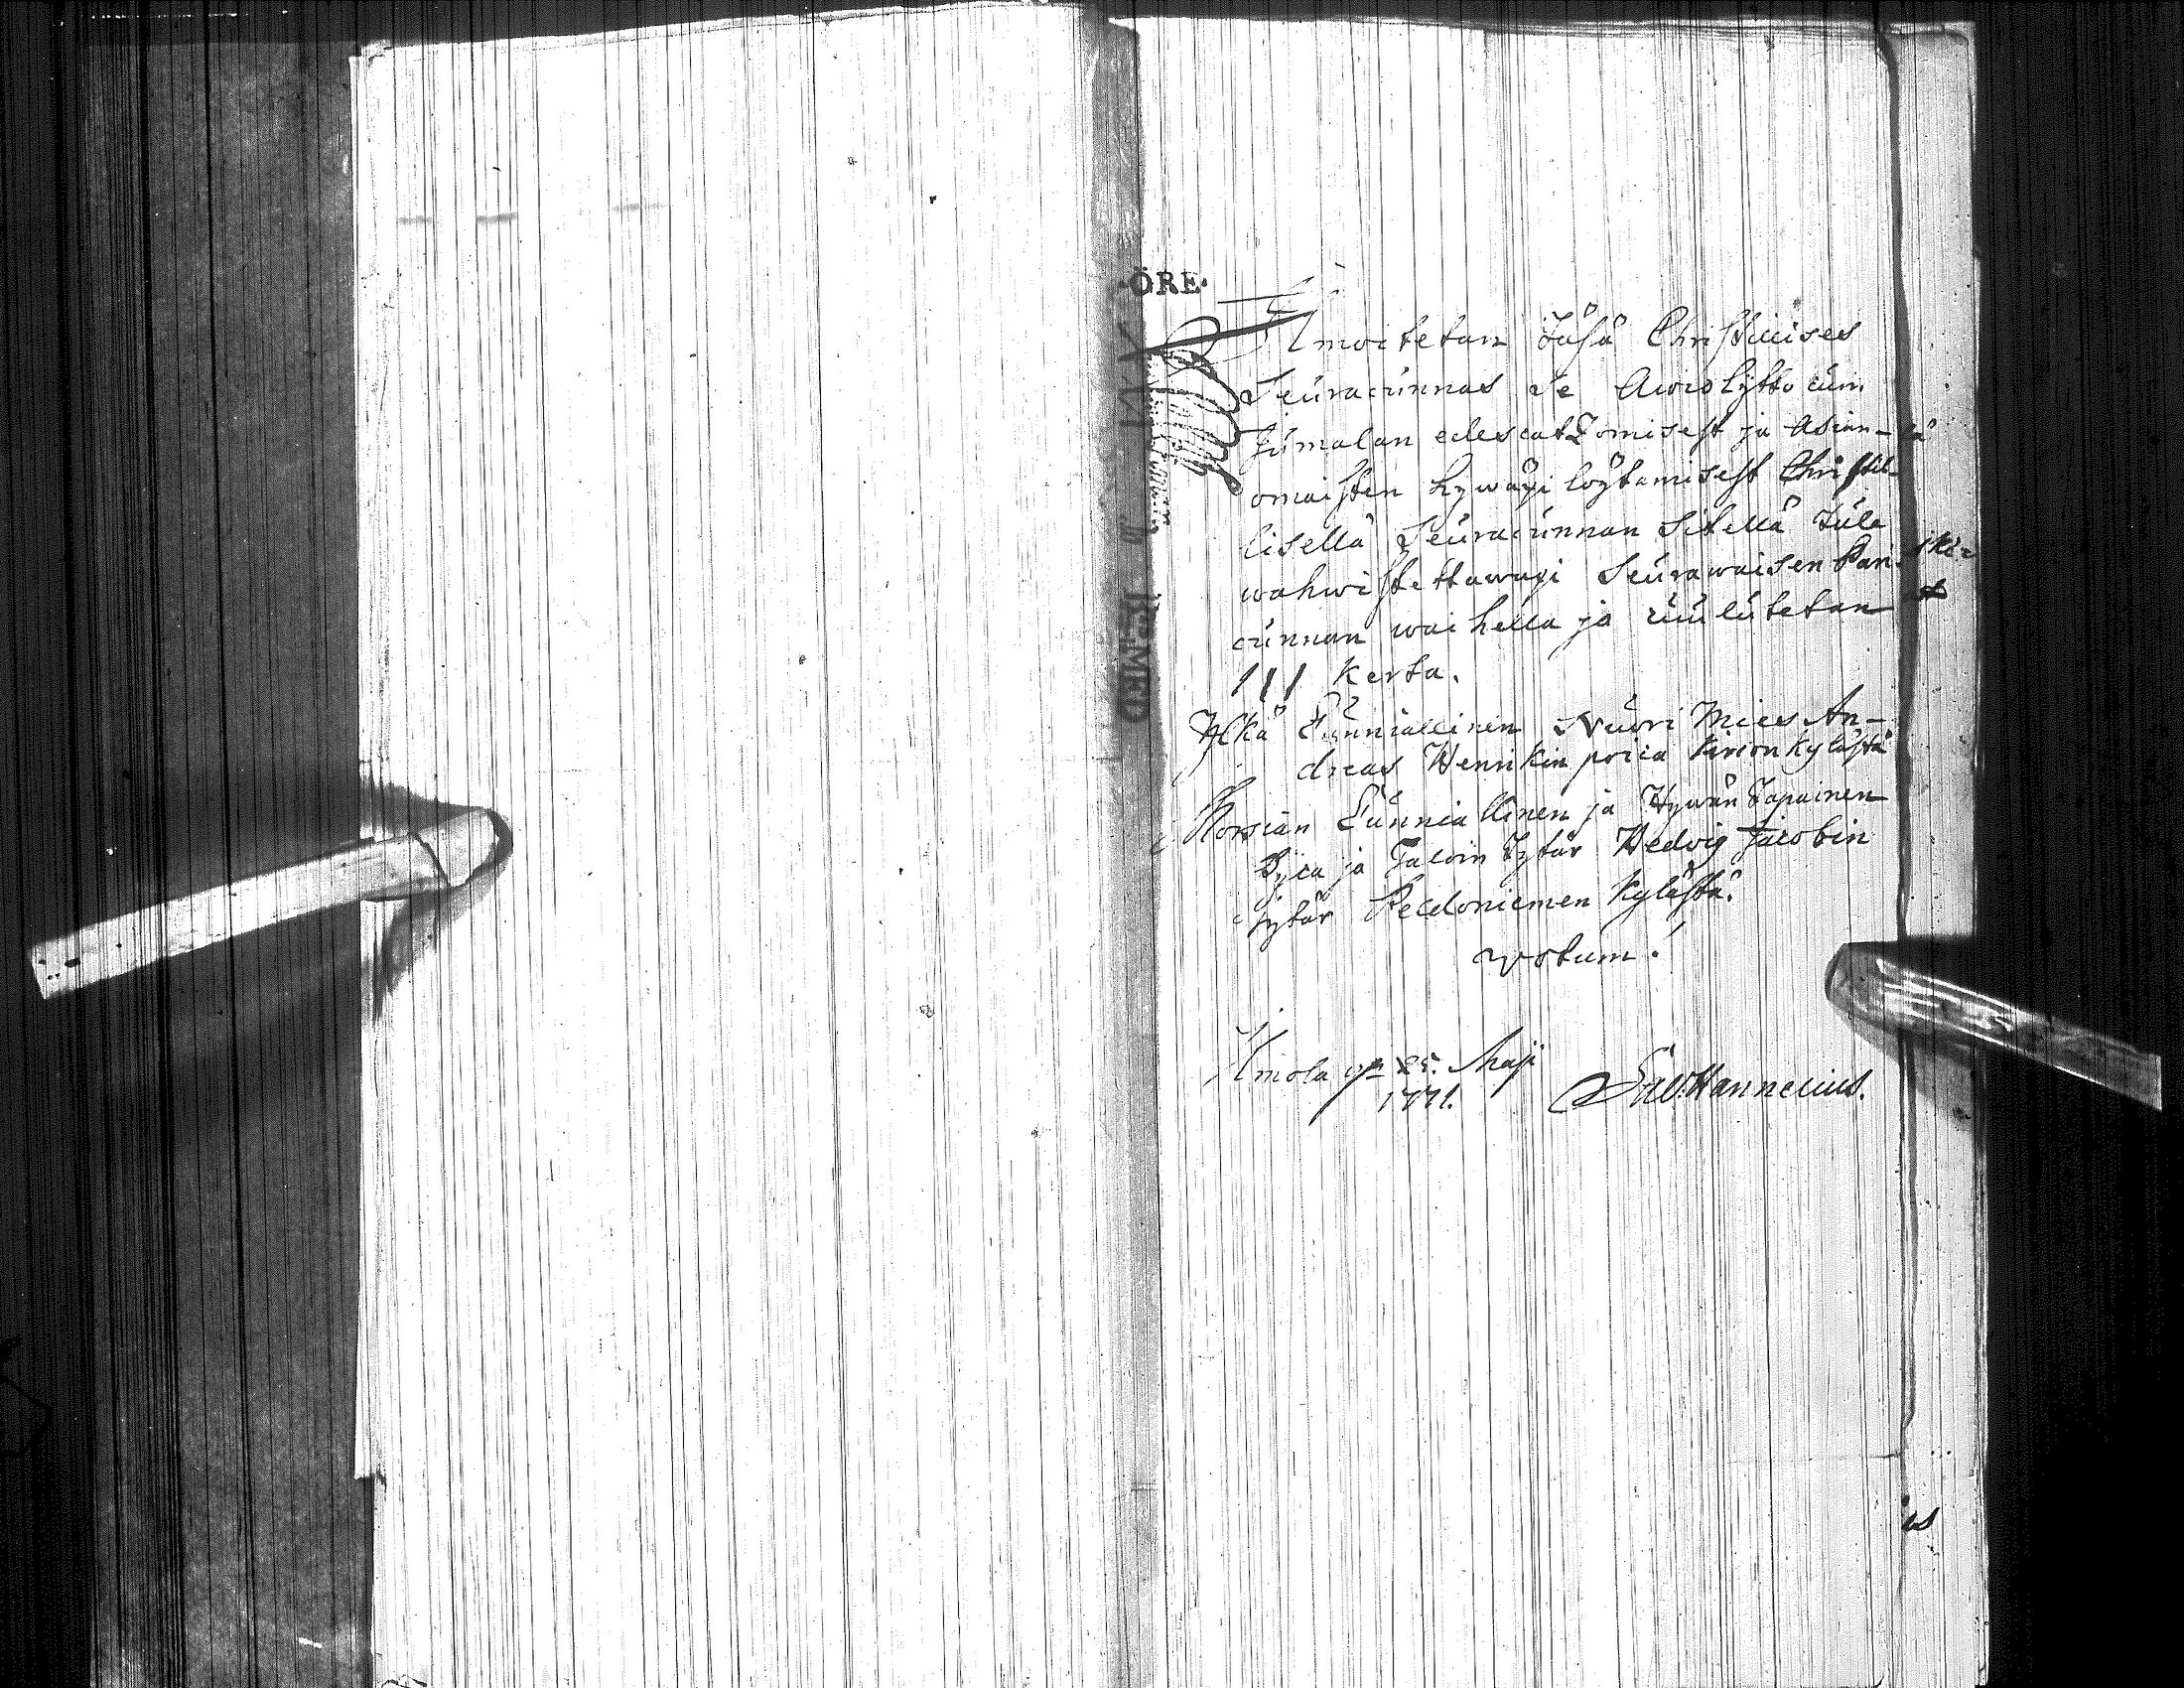 ÖRE.
Ilmoitetan täsä Christilises
Seuracunnas se Awiolijtto cuin
Jumalan edescatzomisest ja Asian-
omaisten hywäxi löytamisest Christil-
lisellä Seuracunnan sitellä tule
wahwistettawaxi Seurawaisen Paris-
cunnan waihella ja cuulutetan
III Kerta.
Ylkä Cunniallinen Nuori Mies An-
dreas Henrikin poica Kirconkylästä
Morsian Cunniallinen ja Hywän Tapainen
Pijca ja Taloin Tytär Hedvig Jacobin
tytär Peldoniemen Kylästä.
votum.
Ilmola 25. Maji
1771.
Hannelius.
is